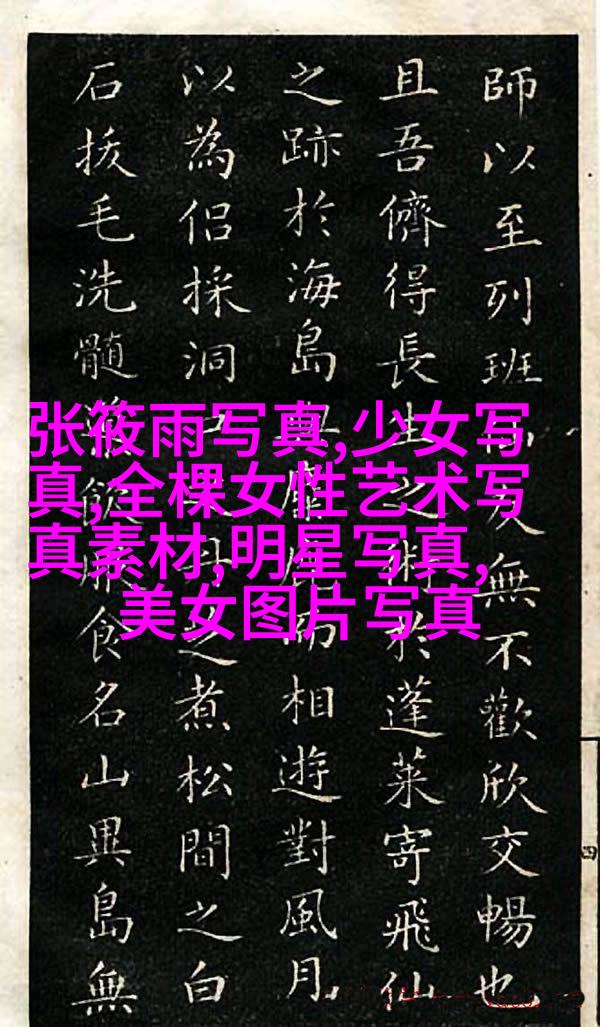 张筱雨写真,少女写
真,全棵女性艺术写
真素材,明星写真,
美女图片写真
師以至列班仙友無不歡欣交暢也
且吾儕得長生之術於蓬萊寄飛仙
之跡於海島與麋鹿而相遊對風月
以為侶採洞之煮松間之白
石拔毛洗髓食名山異島無